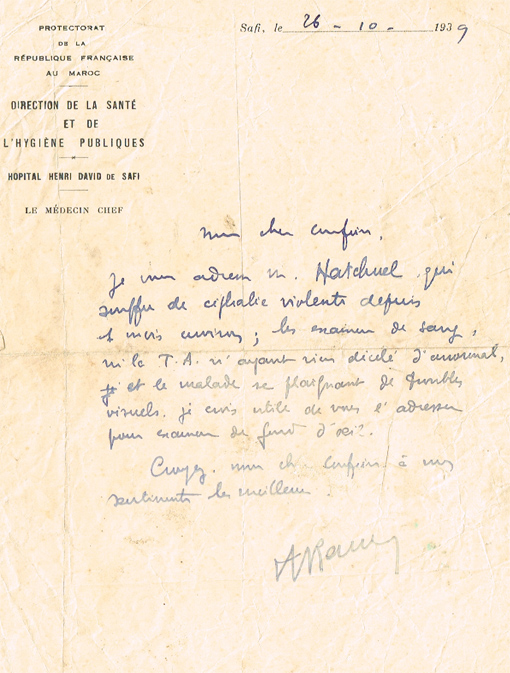 PROTECTORAT
DE LA
RÉPUBLIQUE FRANÇAISE
AU MAROC
DIRECTION DE LA SANTÉ
ET DE
L'HYGIÈNE PUBLIQUES
HOPITAL HENRI DAVID DE SAFI
LE MÉDECIN CHEF
Safi, le 26 - 10 - 1939
Mon cher confrère,
Je vous adresse M. Hatchuel qui
souffre de céphalie violente depuis
mois environ ; les examens de sang,
ni la T.A. n'ayant rien décelé d'anormal,
et le malade se plaignant de troubles
visuels, je crois utile de vous l'adresser
pour examen de fond d'œil.
Croyez, mon cher confrère à mes
sentiments les meilleurs.